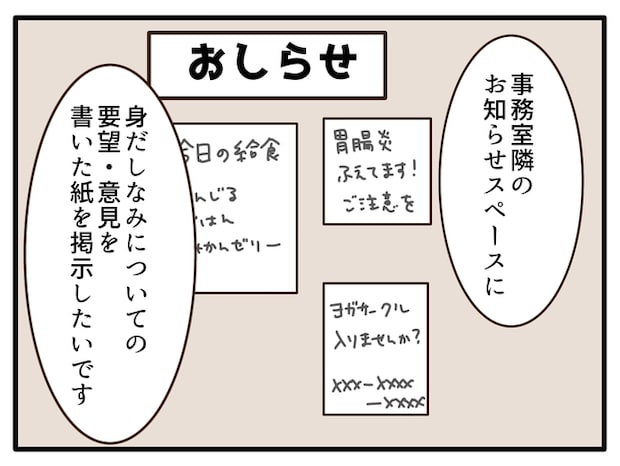 おしらせ
事務室隣の
お知らせスペースに
身だしなみについての
要望・意見を
書いた紙を掲示したいです
胃腸炎
ふえてます!
ご注意を
今日の給食
んじる
はん
かんゼリー
ヨガサークル
入りませんか?
xxx-xxxx
-xxxx